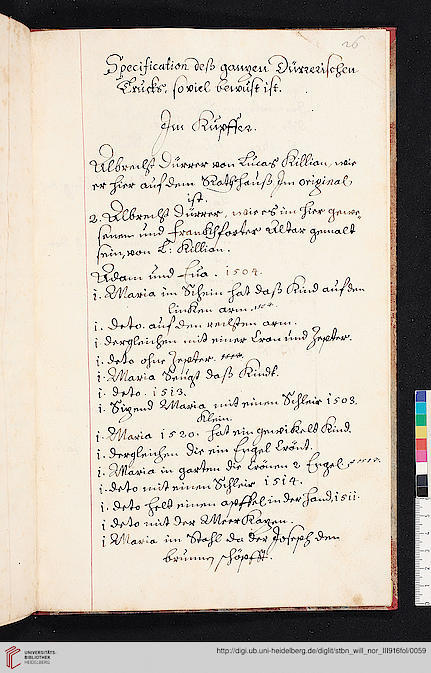 26
Specification deß ganzen Dürrerischen
Trucks, so viel bewust ist.
Im Kupffer.
Albrecht Dürrer von Lucas Killian, wie
er hier auf dem Rathhauß Im original
ist.
2. Albrecht Dürrer, wie es im hier gewe,
senen und Franckhforter Altar gemalt
sein, von L: Killian.
Adam und Eua. 1504.
1. Maria im Schein hat daß Kind auf den
lincken arm.
1. deto. auf den rechten arm.
1. dergleichen mit einer Cron und Zepter.
1. deto ohne Zepter.
1. Maria Seugt daß Kindt.
1. deto. 1513.
1. Sizend Maria mit einen Schleir 1503.
Klein.
1. Maria 1520. hat ein gewickelt Kind.
1. dergleichen die ein Engel Crönt.
1. Maria in garten die Crönen 2 Engel
1. deto mit einen Schleir 1514.
1. deto helt einen apffel in der hand. 1511.
1 deto mit der Meer Kazen.
1 Maria im Stahl da der Joseph den
brunnen schöpfft.
UNIVERSITÄTS-
BIBLIOTHEK
HEIDELBERG
http://digi.ub.uni-heidelberg.de/diglit/stbn_will_nor_III916fol/0059